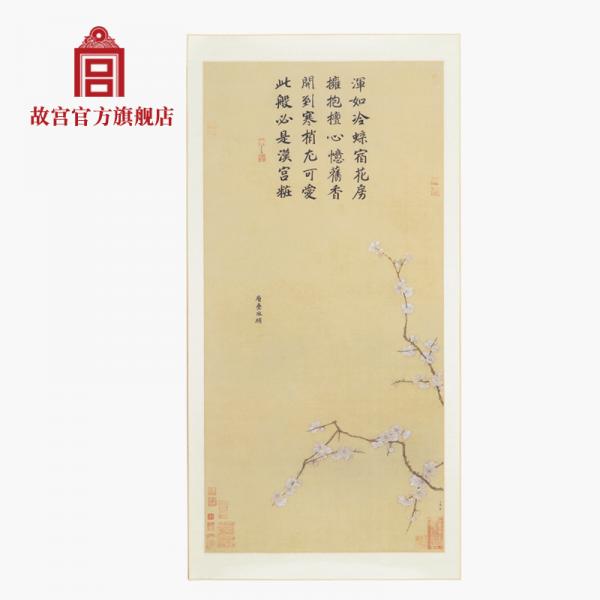 故宫官方旗舰店
渾如冷蝶宿花房
擁抱檀心憶舊香
開到寒梢尤可愛
此般必是漢宮粧
層疊冰綃